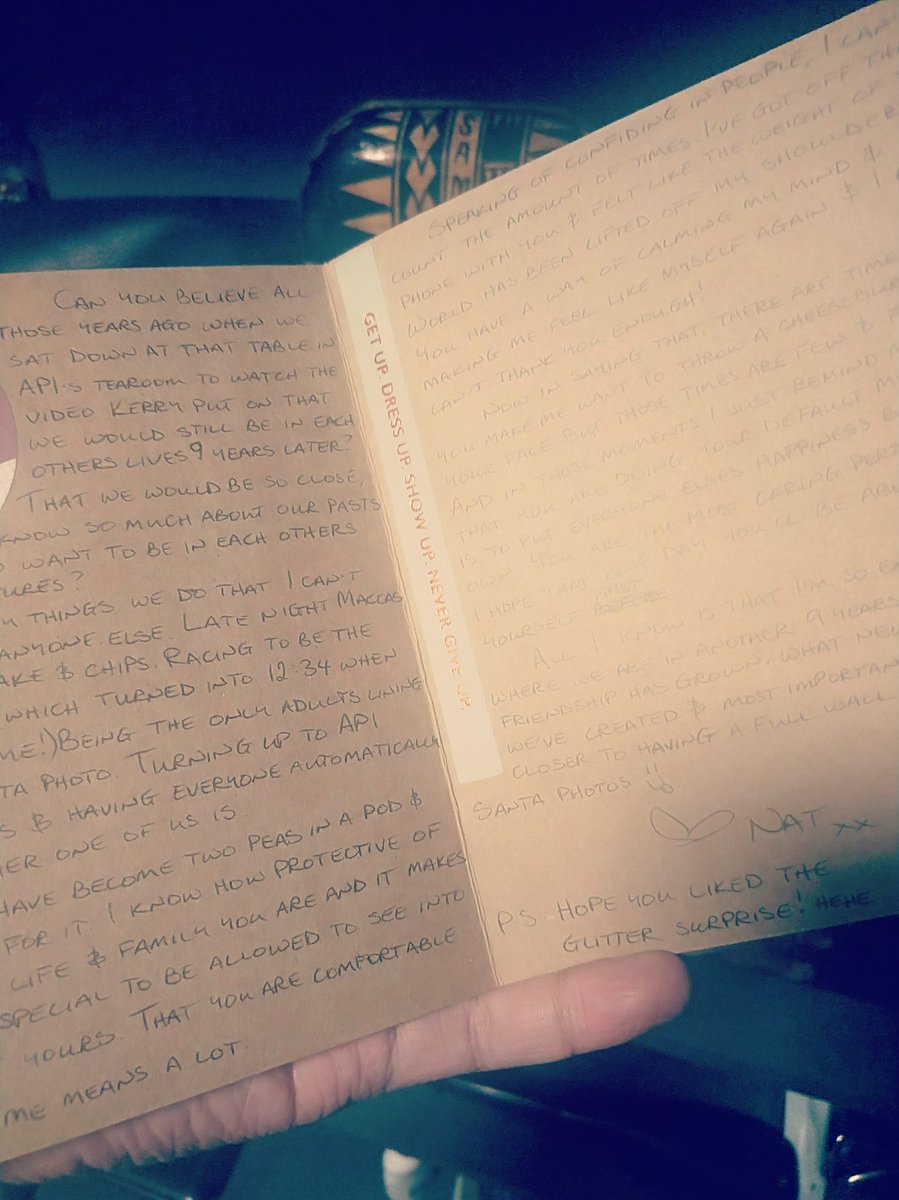 CAN YOU BELIEVE ALL
THOSE YEARS AGO WHEN WE
SAT DOWN AT THAT TABLE IN
API'S TEAROOM TO WATCH THE
VIDEO KERRY PUT ON THAT
WE WOULD STILL BE IN EACH
OTHERS LIVES 9 YEARS LATER?
THAT WE WOULD BE SO CLOSE,
KNOW SO MUCH ABOUT OUR PASTS
WANT TO BE IN EACH OTHERS
URES?
THINGS WE DO THAT I CAN'T
ANYONE ELSE. LATE NIGHT MACCAS
AKE & CHIPS. RACING TO BE THE
WHICH TURNED INTO 12:34 WHEN
ME!) BEING THE ONLY ADULTS LINING
TA PHOTO. TURNING UP TO API
S & HAVING EVERYONE AUTOMATICALLY
HER ONE OF US IS.
HAVE BECOME TWO PEAS IN A POD &
FOR IT. I KNOW HOW PROTECTIVE OF
LIFE & FAMILY YOU ARE AND IT MAKES
SPECIAL TO BE ALLOWED TO SEE INTO
YOURS. THAT YOU ARE COMFORTABLE
ME MEANS A LOT.
GET UP. DRESS UP. SHOW UP. NEVER GIVE UP.
SPEAKING OF CONFIDING IN PEOPLE, I CAN'
COUNT THE AMOUNT OF TIMES I'VE GOT OFF THE
PHONE WITH YOU & FELT LIKE THE WEIGHT OF
WORLD HAS BEEN LIFTED OFF MY SHOULDER
YOU HAVE A WAY OF CALMING MY MIND &
MAKING ME FEEL LIKE MYSELF AGAIN & I
CAN'T THANK YOU ENOUGH!
NOW IN SAYING THAT, THERE ARE TIME
YOU MAKE ME WANT TO THROW A CHEESEBUR
YOUR FACE BUT THOSE TIMES ARE FEW & F
AND IN THOSE MOMENTS I JUST REMIND M
THAT YOU ARE DOING YOUR DEFAULT M
IS TO PUT EVERYONE ELSES HAPPINESS B
OWN. YOU ARE THE MOST CARING PERS
I HOPE THAT ONE DAY YOU'LL BE ABL
YOURSELF FIRST
ALL I KNOW IS THAT I'M SO EX
WHERE WE ARE IN ANOTHER 9 YEARS
FRIENDSHIP HAS GROWN, WHAT NEW
WE'VE CREATED & MOST IMPORTAN
CLOSER TO HAVING A FULL WALL
SANTA PHOTOS!!
NAT xx
PS. HOPE YOU LIKED THE
GLITTER SURPRISE! HEHE